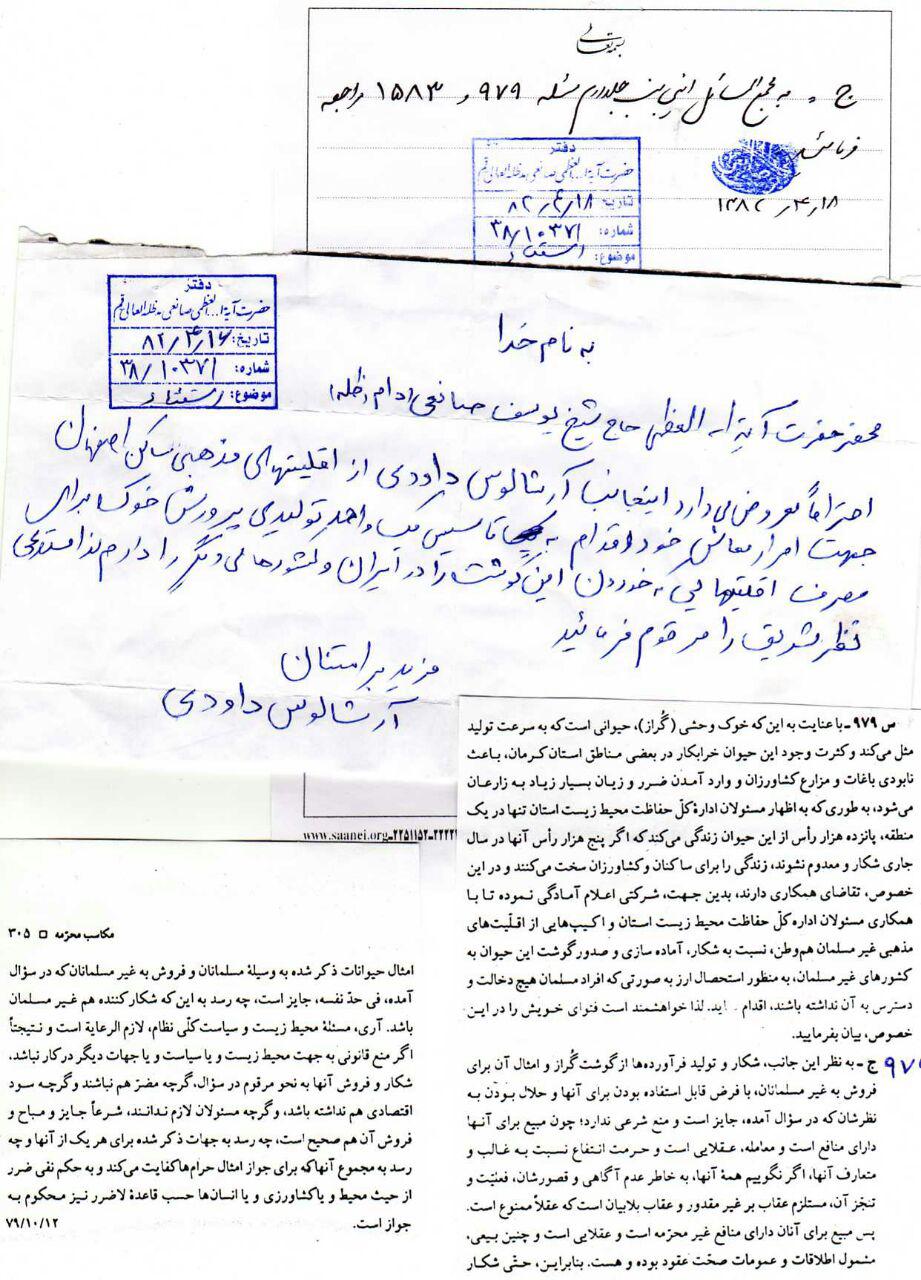 بسمه تعالی
ج - به مجمع المسائل جلد دوم مسئله ۹۷۹ و ۱۵۸۳ مراجعه
فرمائید
۱۳۸۲/۴/۱۸
دفتر
حضرت آیة ا... العظمی صانعی مدظله العالی قم
تاریخ: ۸۲/۴/۱۸
شماره: ۳۸/۱۰۳۷۱
موضوع: استفتاء
دفتر
حضرت آیة ا... العظمی صانعی مدظله العالی قم
تاریخ: ۸۲/۴/۱۶
شماره: ۳۸/۱۰۳۷۱
موضوع: استفتاء
به نام خدا
محضر حضرت آیة اله العظمی حاج شیخ یوسف صانعی (دام ظله)
احتراماً معروض می دارد اینجانب آرشالوس داودی از اقلیتهای مذهبی ساکن اصفهان
جهت امرار معاش خود اقدام به تاسیس یک واحد تولیدی پرورش خوک برای
مصرف اقلیتهایی که خوردن این گوشت را در ایران و کشورهای دیگر را دارم لذا مستدعی
نظر شریف را مرقوم فرمائید
مزید بر امتنان
آرشالوس داودی
www.saanei.org-۲۲۵۱۱۵۲-۲۲۲۲
س ۹۷۹ ـ با عنایت به این که خوک وحشی (گُراز)، حیوانی است که به سرعت تولید
مثل می‌کند و کثرت وجود این حیوان خرابکار در بعضی مناطق استان کرمان، باعث
نابودی باغات و مزارع کشاورزان و وارد آمدن ضرر و زیان بسیار زیاد به زارعان
می‌شود، به طوری که به اظهار مسئولان ادارهٔ کلّ حفاظت محیط زیست استان تنها در یک
منطقه، پانزده هزار رأس از این حیوان زندگی می‌کند که اگر پنج هزار رأس آنها در سال
جاری شکار و معدوم نشوند، زندگی را برای ساکنان و کشاورزان سخت می‌کنند و در این
خصوص، تقاضای همکاری دارند، بدین جهت، شرکتی اعلام آمادگی نموده تا با
همکاری مسئولان ادارهٔ کلّ حفاظت محیط زیست استان و اکیپ‌هایی از اقلّیت‌های
مذهبی غیر مسلمان هم‌وطن، نسبت به شکار، آماده سازی و صدور گوشت این حیوان به
کشورهای غیر مسلمان، به منظور استحصال ارز به صورتی که افراد مسلمان هیچ دخالت و
دسترس به آن نداشته باشند، اقدام . لذا خواهشمند است فتوای خویش را در این
خصوص، بیان بفرمایید.
۹۷۹ ج ـ به نظر این جانب، شکار و تولید فرآورده‌ها از گوشت گُراز و امثال آن برای
فروش به غیر مسلمانان، با فرض قابل استفاده بودن برای آنها و حلال بودن به
نظرشان که در سؤال آمده، جایز است و منع شرعی ندارد؛ چون مبیع برای آنها
دارای منافع است و معامله، عقلایی است و حرمت انتفاع نسبت به غالب و
متعارف آنها، اگر نگوییم همهٔ آنها، به خاطر عدم آگاهی و قصورشان، فعلیّت و
تنجّز آن، مستلزم عقاب بر غیر مقدور و عقاب بلابیان است که عقلاً ممنوع است.
پس مبیع برای آنان دارای منافع غیر محرّمه است و عقلایی است و چنین بیعی،
مشمول اطلاقات و عمومات صحّت عقود بوده و هست. بنابراین، حتّی شکار
مکاسب محرّمه □ ۳۰۵
امثال حیوانات ذکر شده به وسیلهٔ مسلمانان و فروش به غیر مسلمانان که در سؤال
آمده، فی حدّ نفسه، جایز است، چه رسد به این که شکار کننده هم غیر مسلمان
باشد. آری، مسئلهٔ محیط زیست و سیاست کلّی نظام، لازم الرعایة است و نتیجتاً
اگر منع قانونی به جهت محیط زیست و یا سیاست و یا جهات دیگر در کار نباشد،
شکار و فروش آنها به نحو مرقوم در سؤال، گرچه مضرّ هم نباشند و گرچه سود
اقتصادی هم نداشته باشد، و گرچه مسئولان لازم ندانند، شرعاً جایز و مباح و
فروش آن هم صحیح است، چه رسد به جهات ذکر شده برای هر یک از آنها و چه
رسد به مجموع آنها که برای جواز امثال حرام‌ها کفایت می‌کند و به حکم نفی ضرر
از حیث محیط و یا کشاورزی و یا انسان‌ها حسب قاعدهٔ لاضرر نیز محکوم به
جواز است. ۷۹/۱۰/۱۲